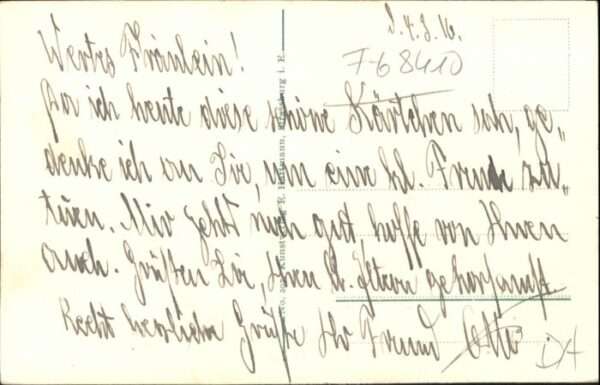 S. 4.8.16.
F-68410
Wertes Fräulein!
Da ich heute diese schöne Kärtchen sah, ge„
denke ich an Sie, um eine kl. Freude zu„
tuen. Mir geht noch gut, hoffe von Ihnen
auch. Grüßen Sie, Ihren l. Eltern gehorsamst.
Recht herzliche Grüße Ihr Freund Otto
DA